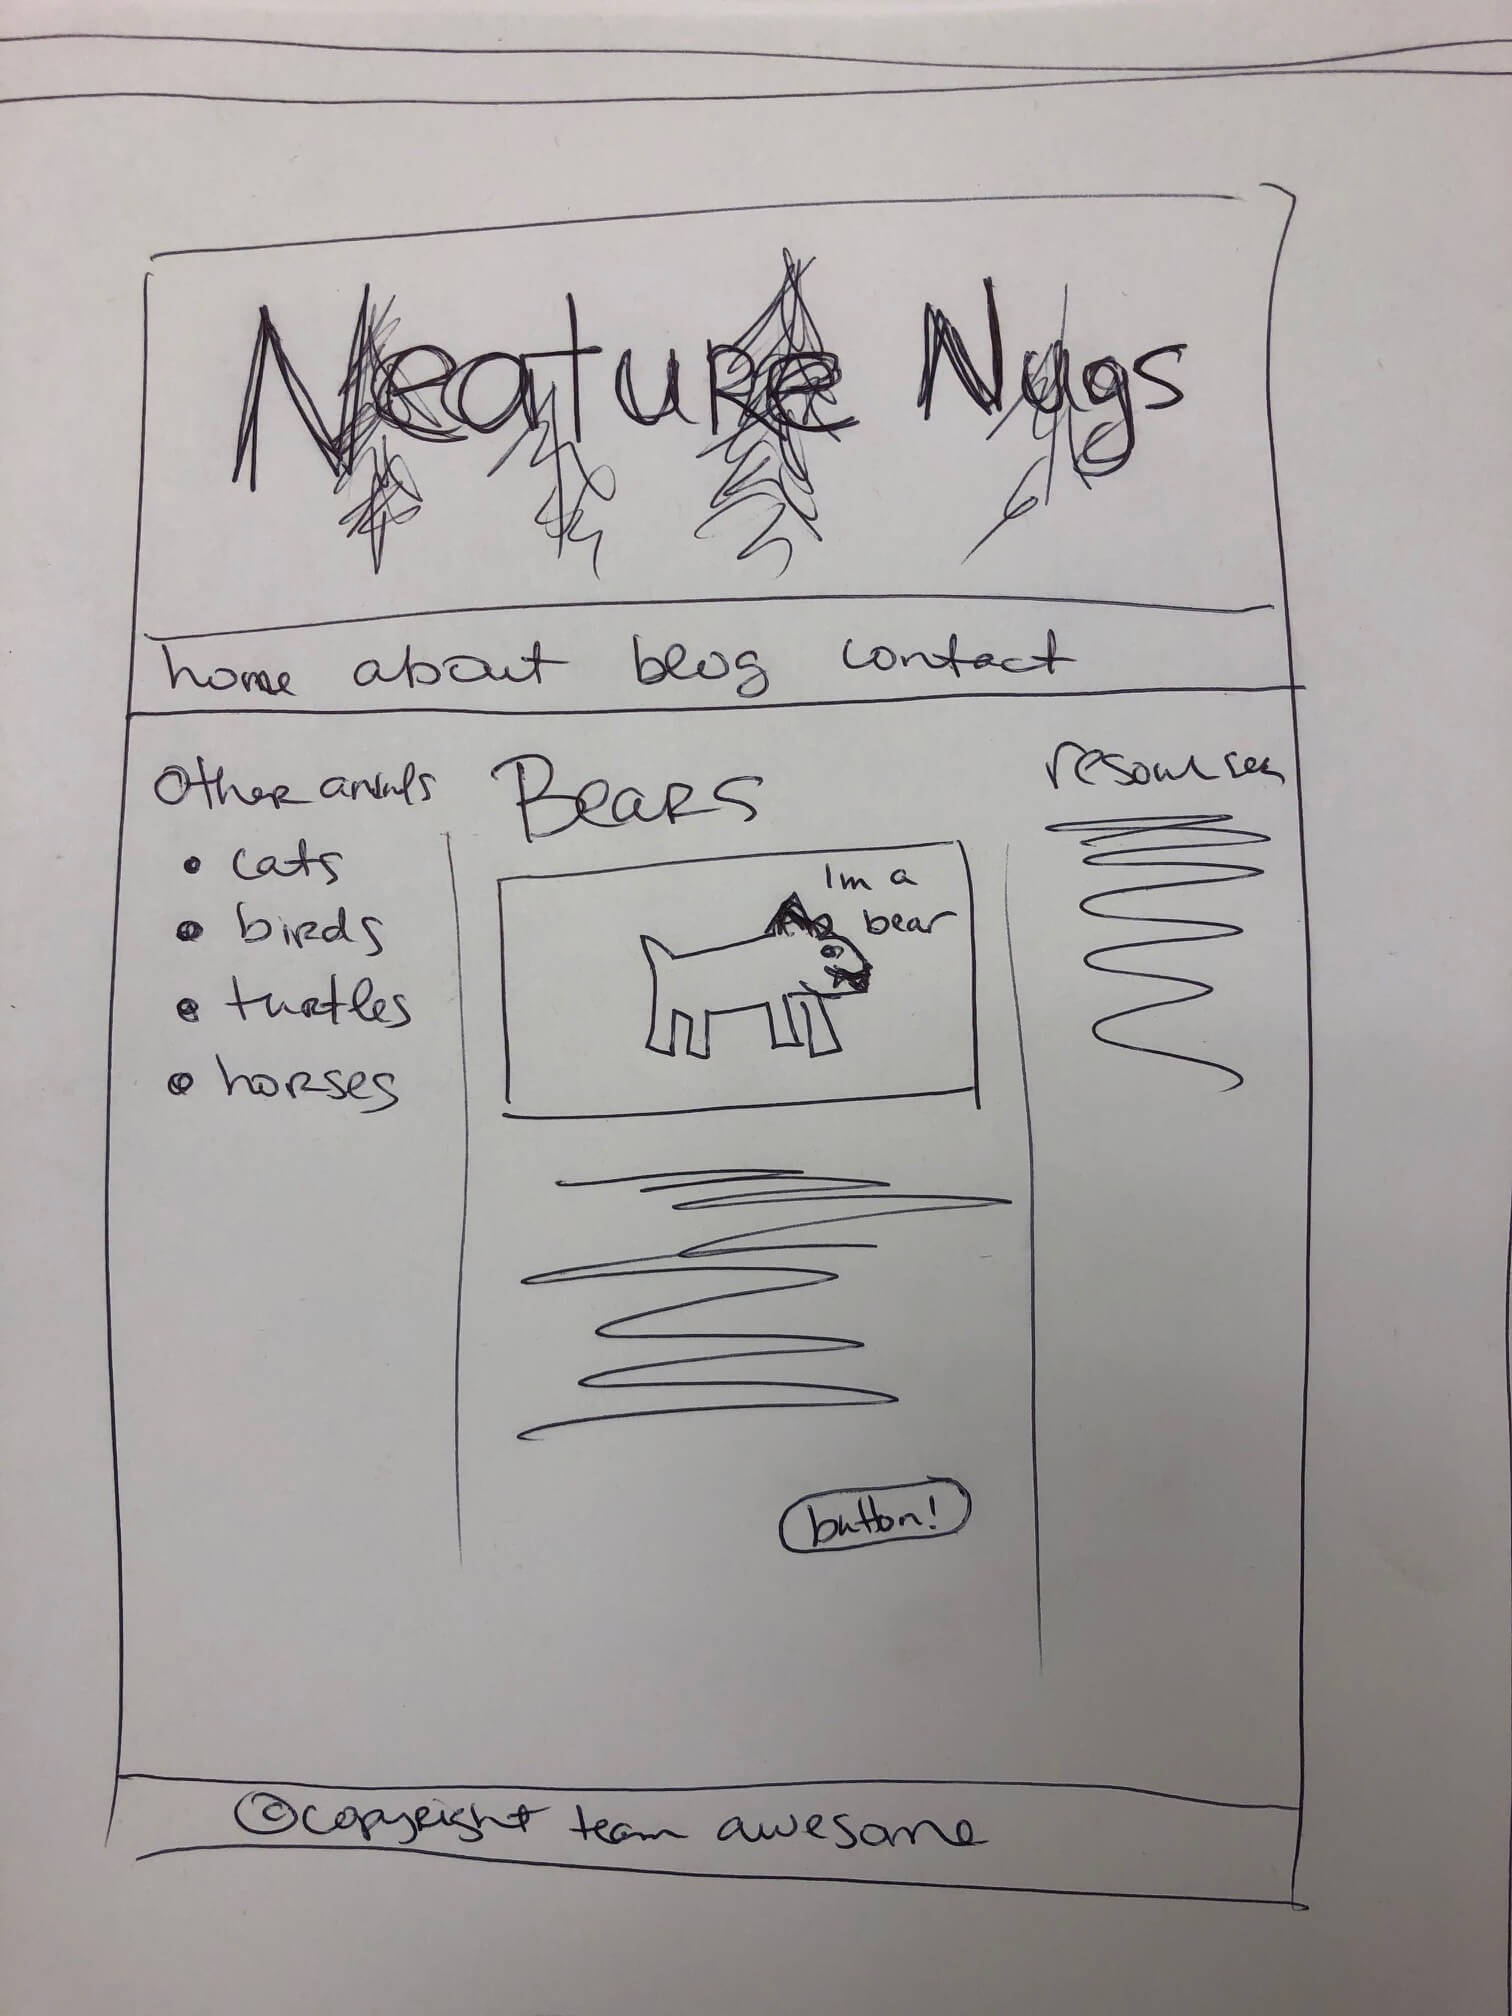 Neature Nugs
home about blog contact
Other animals
• cats
• birds
• turtles
• horses
Bears
I'm a
bear
button!
resourses
©copyright team awesome